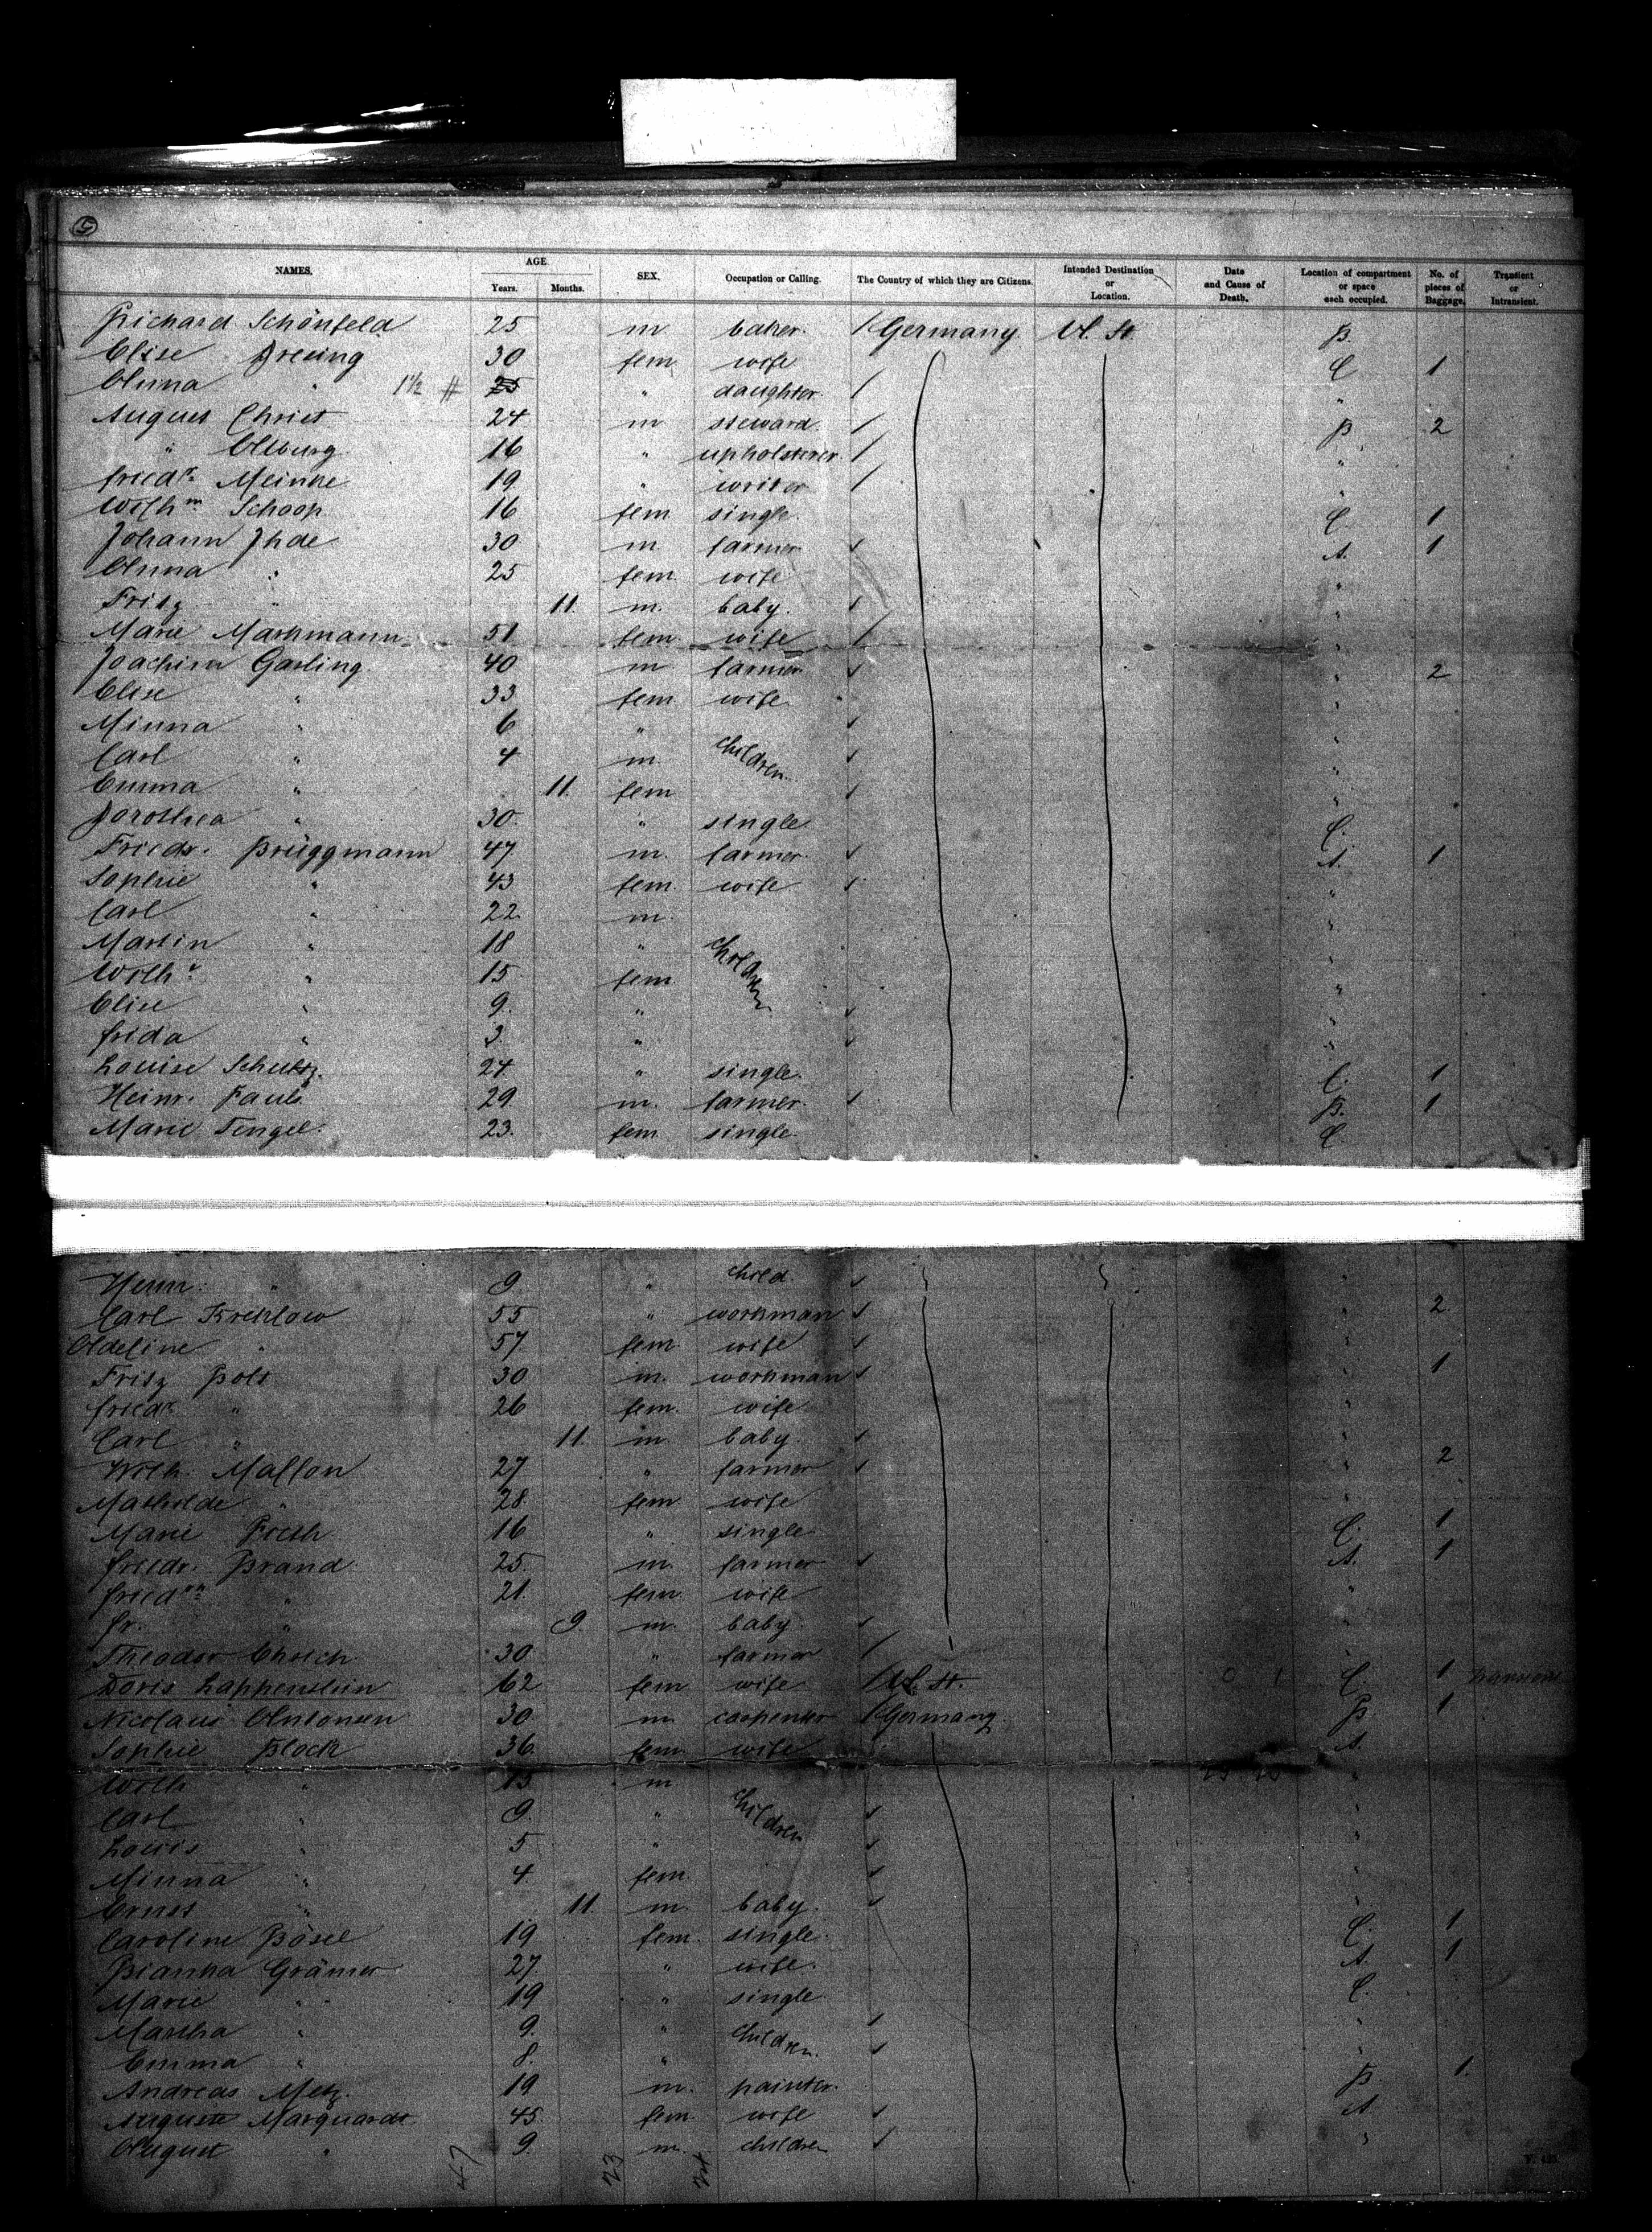 5
NAMES. AGE. Years. Months. SEX. Occupation or Calling. The Country of which they are Citizens. Intended Destination or Location. Date and Cause of Death. Location of compartment or space each occupied. No. of pieces of Baggage. Transient or Intransient.
Richard Schönfeld 25 m baker. / Germany U. St. B.
Elise 30 fem wife C 1
Anna " 1½ # 25 " daughter. / "
August Christ 24 m steward. / B 2
" 16 " upholsterer. / "
Friedr. Meinke 19 " writer / " "
Wilhm Schoop 16 fem single. C 1
Johann Ihde 30 m farmer ✓ A. 1
Anna " 25 fem. wife "
Fritz " 11. m. baby. ✓ "
Marie Markmann 51 fem. wife / "
Joachim Garling 40 m farmer ✓ " 2
Elise " 33 fem wife "
Minna " 6 " ✓ "
Carl " 4 m children. ✓ "
Emma " 11. fem ✓ "
Dorothea " 30. " single C.
Friedr. Brüggmann 47 m. farmer. ✓ A. 1
Sophie " 43 fem. wife ✓ "
Carl " 22. m. "
Martin " 18 " children "
Wilhe " 15 fem "
Elise " 9. " ✓ "
Frida " 3. " ✓ "
Louise Schultz. 24 " single. C. 1
Heinr. Pauls 29 m. farmer. ✓ B. 1
Marie Tengel. 23. fem single. C
Herm. " 9. " child ✓ "
Carl Krehlow 55 " workman ✓ " 2
Adeline " 57 fem wife ✓ "
Fritz Bolt 30 m. workman ✓ " 1
Friedr. " 26 fem. wife "
Carl " 11. m baby. ✓ "
Wilh. Mallon 27 " farmer ✓ " 2
Mathilde " 28. fem wife "
Marie 16 " single C. 1
Friedr. Brand 25. m. farmer ✓ A. 1
" 21. fem wife "
Fr. " 9. m. baby. ✓ "
Theodor 30. " farmer / "
Doris Lappenstein 62 fem wife / U. St. 0 1 C. 1
Nicolaus Antonsen 30 m. carpenter / Germany. B. 1
Sophie Block 36. fem. wife A.
Wilh " 13 m "
Carl " 9. " children ✓ "
Louis " 5 " ✓ "
Minna " 4 fem. ✓ "
Ernst " 11. m. baby. ✓ "
Caroline Bösel 19 fem. single. C. 1
Bianka Grämer 27 " wife. A. 1
Marie " 19 " single. C.
Martha " 9. " children. ✓ "
Emma " 8. " ✓ "
Andreas Metz. 19 m. painter. B. 1.
Auguste Marquardt 45 fem. wife ✓ A.
August " 9. m. children ✓ "
47 23 24